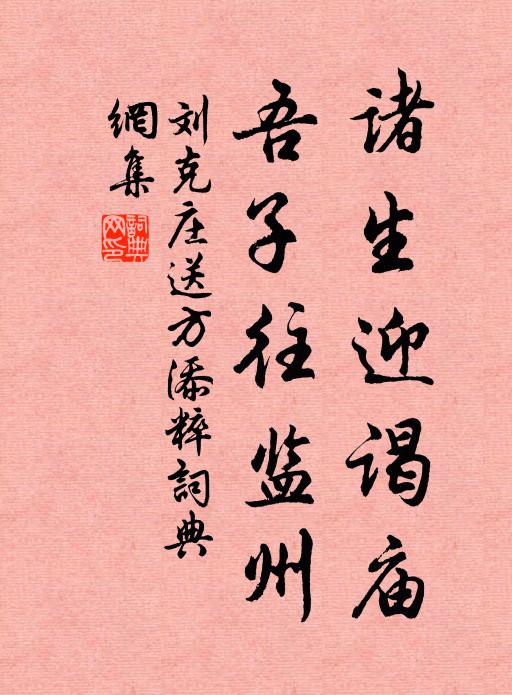 诸生迎谒庙
吾子往监州
刘克庄送方添粹詞典
網集
詞典
网印